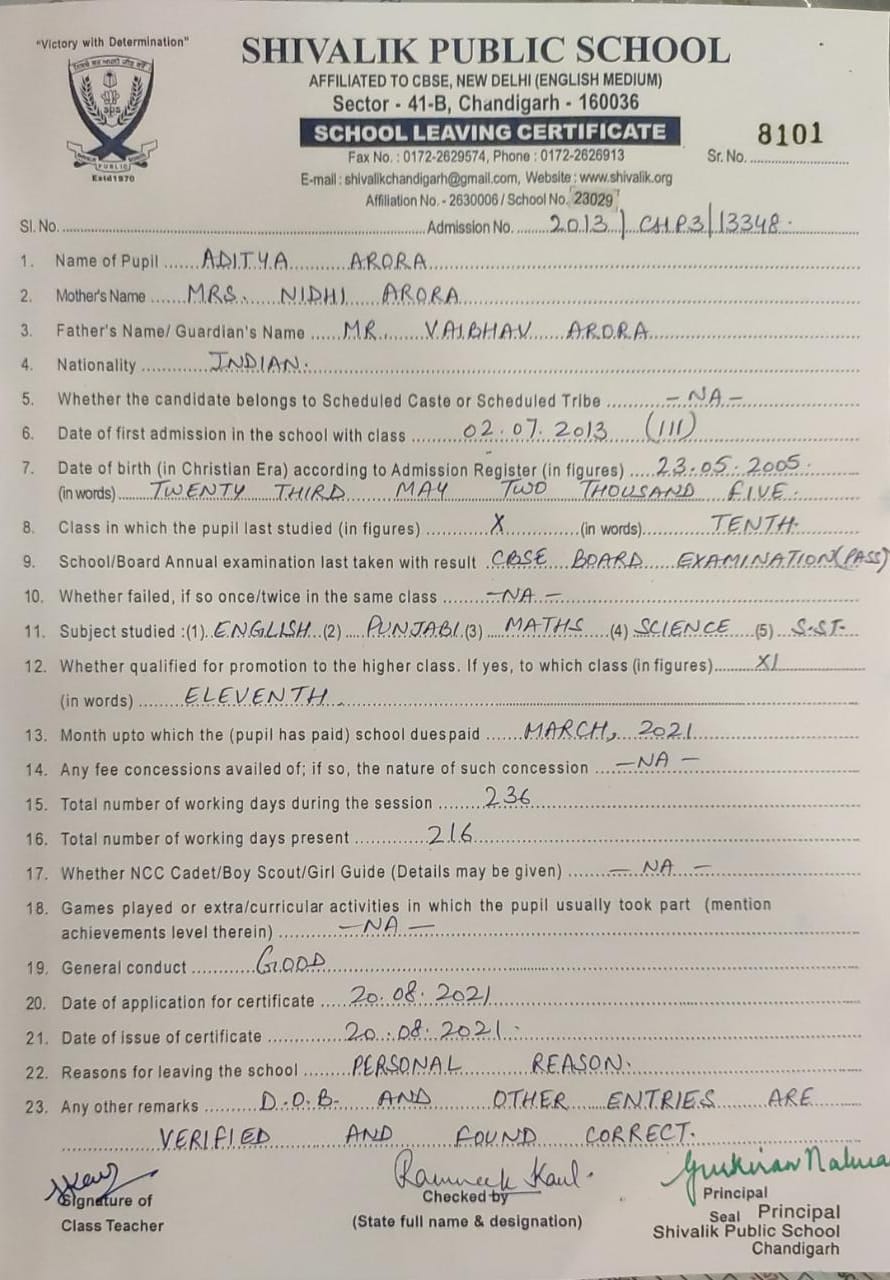 "Victory with Determination"
SHIVALIK PUBLIC SCHOOL
AFFILIATED TO CBSE, NEW DELHI (ENGLISH MEDIUM)
Sector - 41-B, Chandigarh - 160036
SCHOOL LEAVING CERTIFICATE
Fax No. : 0172-2629574, Phone : 0172-2626913
Sr. No. 8101
E-mail : shivalikchandigarh@gmail.com, Website : www.shivalik.org
Estd 1970
Affiliation No. - 2630006 / School No. 23029
Sl. No. Admission No. 2013/CHP3/13348.
1. Name of Pupil ADITYA ARORA
2. Mother's Name MRS. NIDHI ARORA
3. Father's Name/ Guardian's Name MR. VAIBHAV ARORA
4. Nationality INDIAN.
5. Whether the candidate belongs to Scheduled Caste or Scheduled Tribe -NA-
6. Date of first admission in the school with class 02.07.2013 (III)
7. Date of birth (in Christian Era) according to Admission Register (in figures) 23.05.2005.
(in words) TWENTY THIRD MAY TWO THOUSAND FIVE.
8. Class in which the pupil last studied (in figures) X (in words) TENTH.
9. School/Board Annual examination last taken with result CBSE BOARD EXAMINATION (PASS)
10. Whether failed, if so once/twice in the same class -NA-
11. Subject studied :(1) ENGLISH (2) PUNJABI (3) MATHS (4) SCIENCE (5) S.ST.
12. Whether qualified for promotion to the higher class. If yes, to which class (in figures) XI
(in words) ELEVENTH.
13. Month upto which the (pupil has paid) school dues paid MARCH, 2021
14. Any fee concessions availed of; if so, the nature of such concession -NA-
15. Total number of working days during the session 236
16. Total number of working days present 216
17. Whether NCC Cadet/Boy Scout/Girl Guide (Details may be given) -NA-
18. Games played or extra/curricular activities in which the pupil usually took part (mention
achievements level therein) -NA-
19. General conduct GOOD
20. Date of application for certificate 20.08.2021
21. Date of issue of certificate 20.08.2021.
22. Reasons for leaving the school PERSONAL REASON.
23. Any other remarks D.O.B. AND OTHER ENTRIES ARE
VERIFIED AND FOUND CORRECT.
Ramneek Kaul.
Signature of
Class Teacher
Checked by
(State full name & designation)
Principal
Seal Principal
Shivalik Public School
Chandigarh